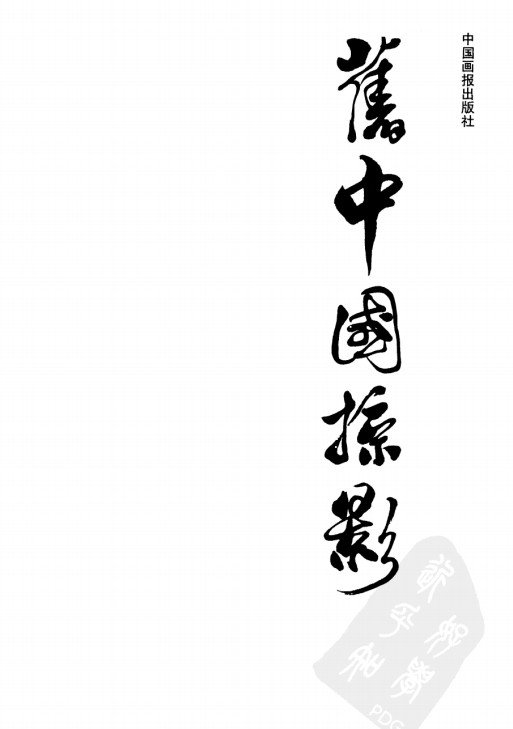 中国画报出版社
舊中國掠影
PDG